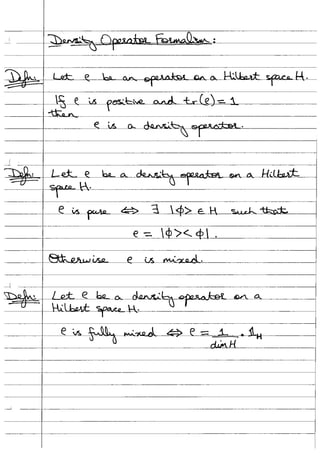 Density Operator Formalism:
Defn: Let ρ be an operator on a Hilbert space H.
If ρ is positive and tr(ρ) = 1
then
ρ is a density operator.
Defn: Let ρ be a density operator on a Hilbert
space H.
ρ is pure ⇔ ∃ |ϕ> ∈ H such that
ρ = |ϕ><ϕ|.
Otherwise ρ is mixed.
Defn: Let ρ be a density operator on a
Hilbert space H.
ρ is fully mixed ⇔ ρ = 1/dim H · 1_H